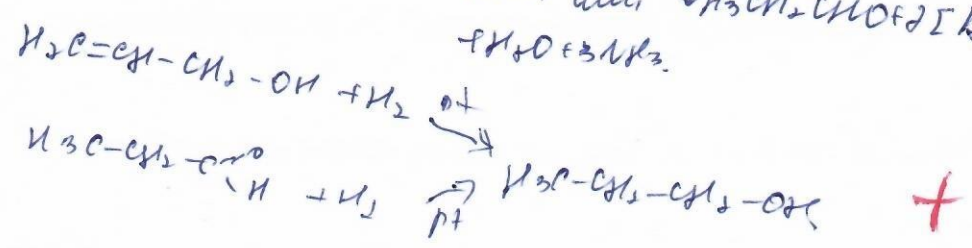 CH3CH2CHO+2[
+H2O+3NH3.
H2C=CH-CH2-OH +H2 pt
H3C-CH2-C=O
H +H2 pt H3C-CH2-CH2-OH +